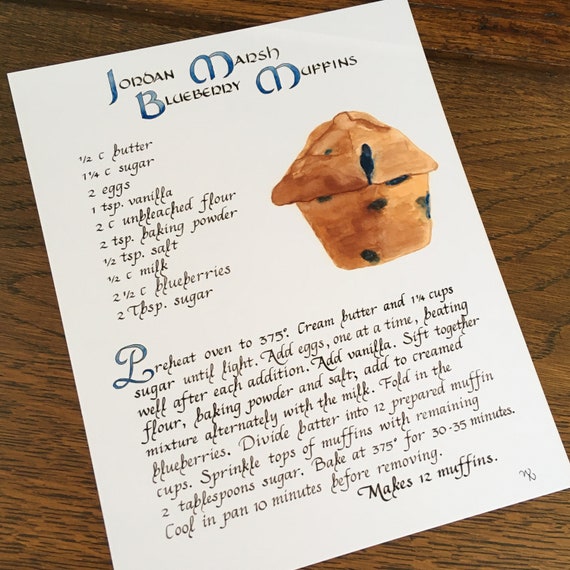 Jordan Marsh
Blueberry Muffins
½ c butter
1¼ c sugar
2 eggs
1 tsp. vanilla
2 c unbleached flour
2 tsp. baking powder
½ tsp. salt
½ c milk
2 ½ c blueberries
2 Tbsp. sugar
Preheat oven to 375°. Cream butter and 1¼ cups
sugar until light. Add eggs, one at a time, beating
well after each addition. Add vanilla. Sift together
flour, baking powder and salt; add to creamed
mixture alternately with the milk. Fold in the
blueberries. Divide batter into 12 prepared muffin
cups. Sprinkle tops of muffins with remaining
2 tablespoons sugar. Bake at 375° for 30-35 minutes.
Cool in pan 10 minutes before removing.
Makes 12 muffins.